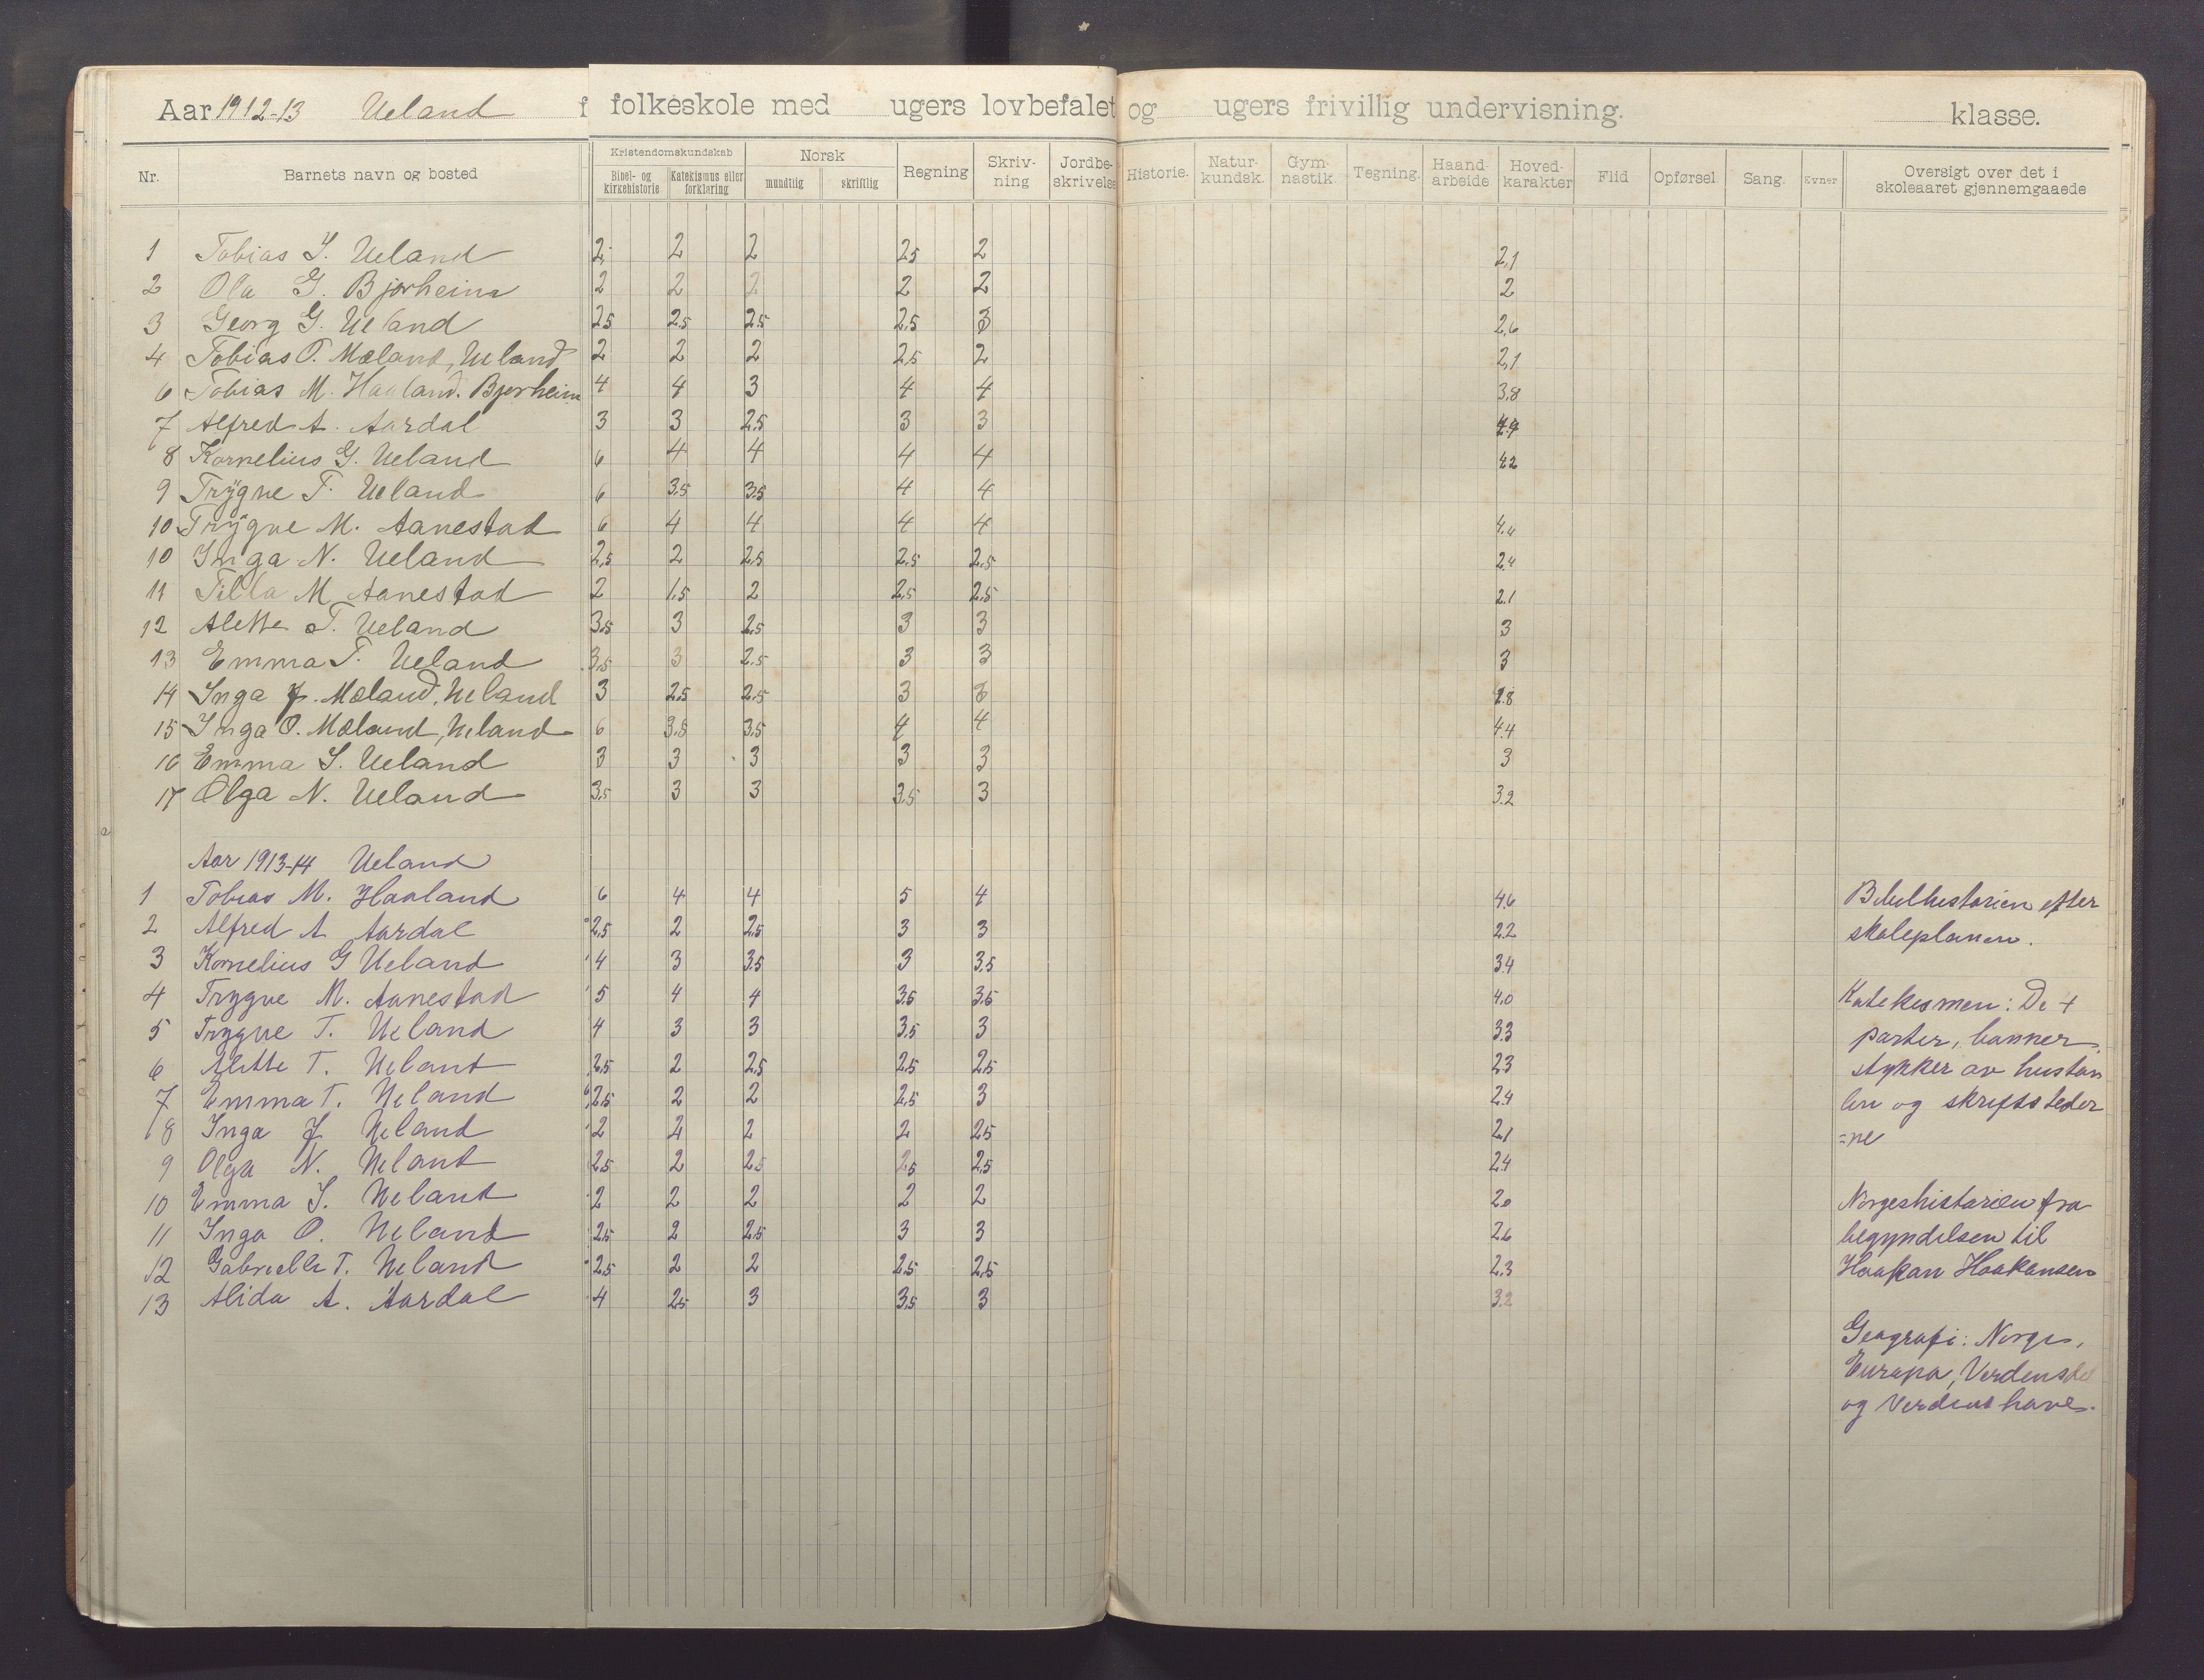 Aar 1912-13 Ueland f folkeskole med ugers lovbefalet og ugers frivillig undervisning. klasse.
Nr. Barnets navn og bosted Kristendomskundskab Bibel- og kirkehistorie Katekismus eller forklaring Norsk mundtlig skriftlig Regning Skriv-ning Jordbe-skrivelse Historie. Natur-kundsk. Gym-nastik. Tegning. Haand-arbeide Hoved-karakter Flid Opførsel. Sang. Evner Oversigt over det i skoleaaret gjennemgaaede
1 Tobias I. Ueland 2 2 2 2,5 2 2,1
2 Ola G. Bjorheim 2 2 2 2 2 2
3 Georg G. Ueland 2,5 2,5 2,5 2,5 3 2,6
4 Tobias O. Mæland, Ueland 2 2 2 2,5 2 2,1
6 Tobias M. Haaland. Bjorheim 4 4 3 4 4 3,8
7 Alfred A. Aardal 3 3 2,5 3 3
8 Kornelius G. Ueland 6 4 4 4 4 4,2
9 Trygve T. Ueland 6 3,5 3,5 4 4
10 Trygve M. Aanestad 6 4 4 4 4 4,4
10 Inga N. Ueland 2,5 2 2,5 2,5 2,5 2,4
11 Tilla M Aanestad 2 1,5 2 2,5 2,5 2,1
12 Alette T. Ueland 3,5 3 2,5 3 3 3
13 Emma T. Ueland 3,5 3 2,5 3 3 3
14 Inga J. Mæland, Ueland 3 2,5 2,5 3 3 2,8
15 Inga O. Mæland, Ueland 6 3,5 3,5 4 4 4,4
16 Emma I. Ueland 3 3 3 3 3 3
17 Olga N. Ueland 3,5 3 3 3,5 3 3,2
Aar 1913-14 Ueland
1 Tobias M. Haaland 6 4 4 5 4 4,6 Bibelhistorien efter
2 Alfred A Aardal 2,5 2 2,5 3 3 2,2 skoleplanen.
3 Kornelius G Ueland 4 3 3,5 3 3,5 3,4
4 Trygve M. Aanestad 5 4 4 3,5 3,5 4,0 Katekismen: De 4
5 Trygve T. Ueland 4 3 3 3,5 3 3,3 parter, bønner,
6 Alette T. Ueland 2,5 2 2,5 2,5 2,5 2,3 stykker av hustav
7 Emma T. Ueland 2,5 2 2 2,5 3 2,4 len og skriftsteder
8 Inga J Ueland 2 2 2 2 2,5 2,1 =ne
9 Olga N. Ueland 2,5 2 2,5 2,5 2,5 2,4
10 Emma I. Ueland 2 2 2 2 2 2,0 Norgeshistorien fra
11 Inga O. Ueland 2,5 2 2,5 3 3 2,6 begyndelsen til
12 Gabrielle T. Ueland 2,5 2 2 2,5 2,5 2,3 Haakon Haakonsen
13 Alida A. Aardal 4 2,5 3 3,5 3 3,2
Geografi: Norge,
Europa, Verdensdel
og Verdenshave.